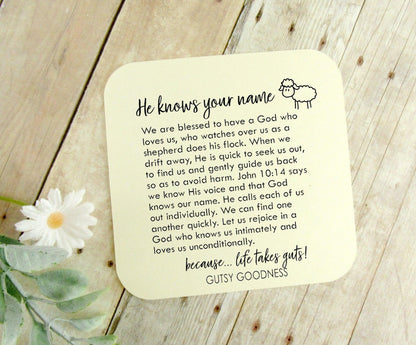 He knows your name
We are blessed to have a God who
loves us, who watches over us as a
shepherd does his flock. When we
drift away, He is quick to seek us out,
to find us and gently guide us back
so as to avoid harm. John 10:14 says
we know His voice and that God
knows our name. He calls each of us
out individually. We can find one
another quickly. Let us rejoice in a
God who knows us intimately and
loves us unconditionally.
because... life takes guts!
GUTSY GOODNESS